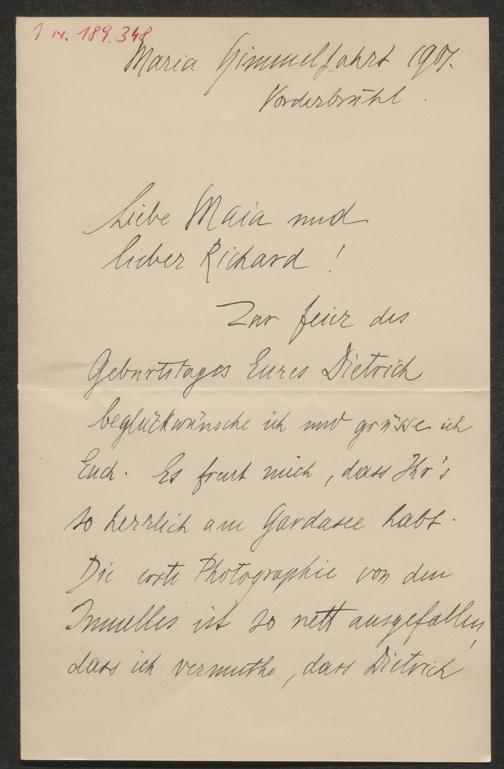 I. N. 189.348
Maria Himmelfahrt 1907.
Vorderbrühl.
Liebe Maia und
lieber Richard!
Zur Feier des
Geburtstages Eures Dietrich
beglückwünsche ich und grüsse ich
Euch. Es freut mich, dass Ihr's
so herrlich am Gardasee habt.
Die erste Photographie von den
ist so nett ausgefallen,
dass ich vermuthe, dass Dietrich